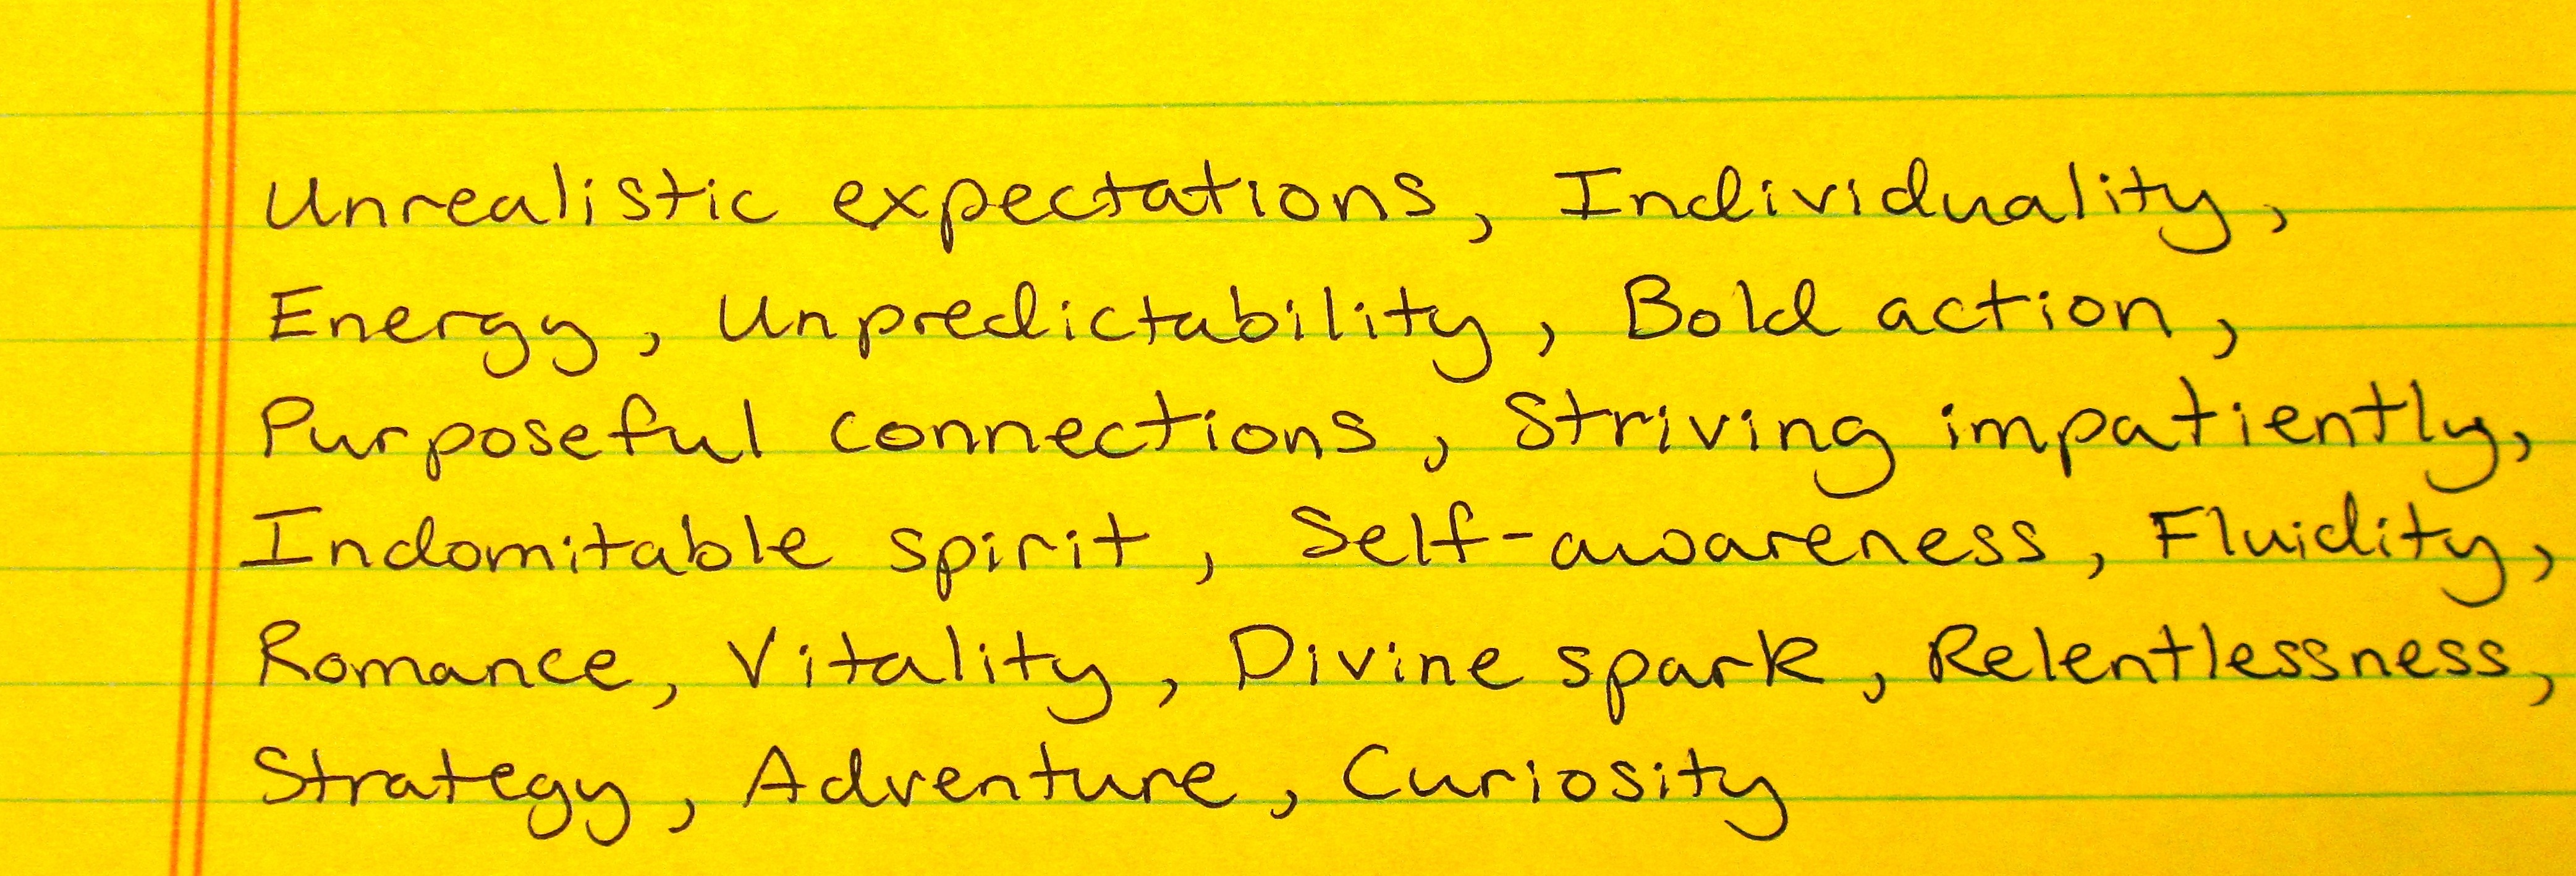 Unrealistic expectations, Individuality,
Energy, Unpredictability, Bold action,
Purposeful connections, Striving impatiently,
Indomitable spirit, Self-awareness, Fluidity,
Romance, Vitality, Divine spark, Relentlessness,
Strategy, Adventure, Curiosity